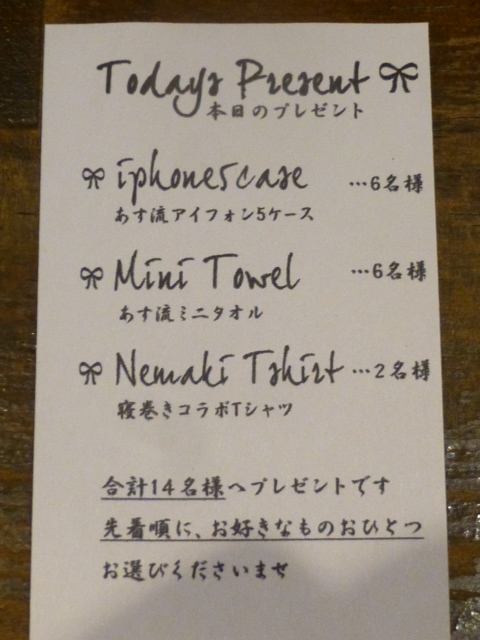 Todays Present
本日のプレゼント
iphone5case …6名様
あす流アイフォン5ケース
Mini Towel …6名様
あす流ミニタオル
Nemaki Tshirt …2名様
寝巻きコラボTシャツ
合計14名様へプレゼントです
先着順に、お好きなものおひとつ
お選びくださいませ